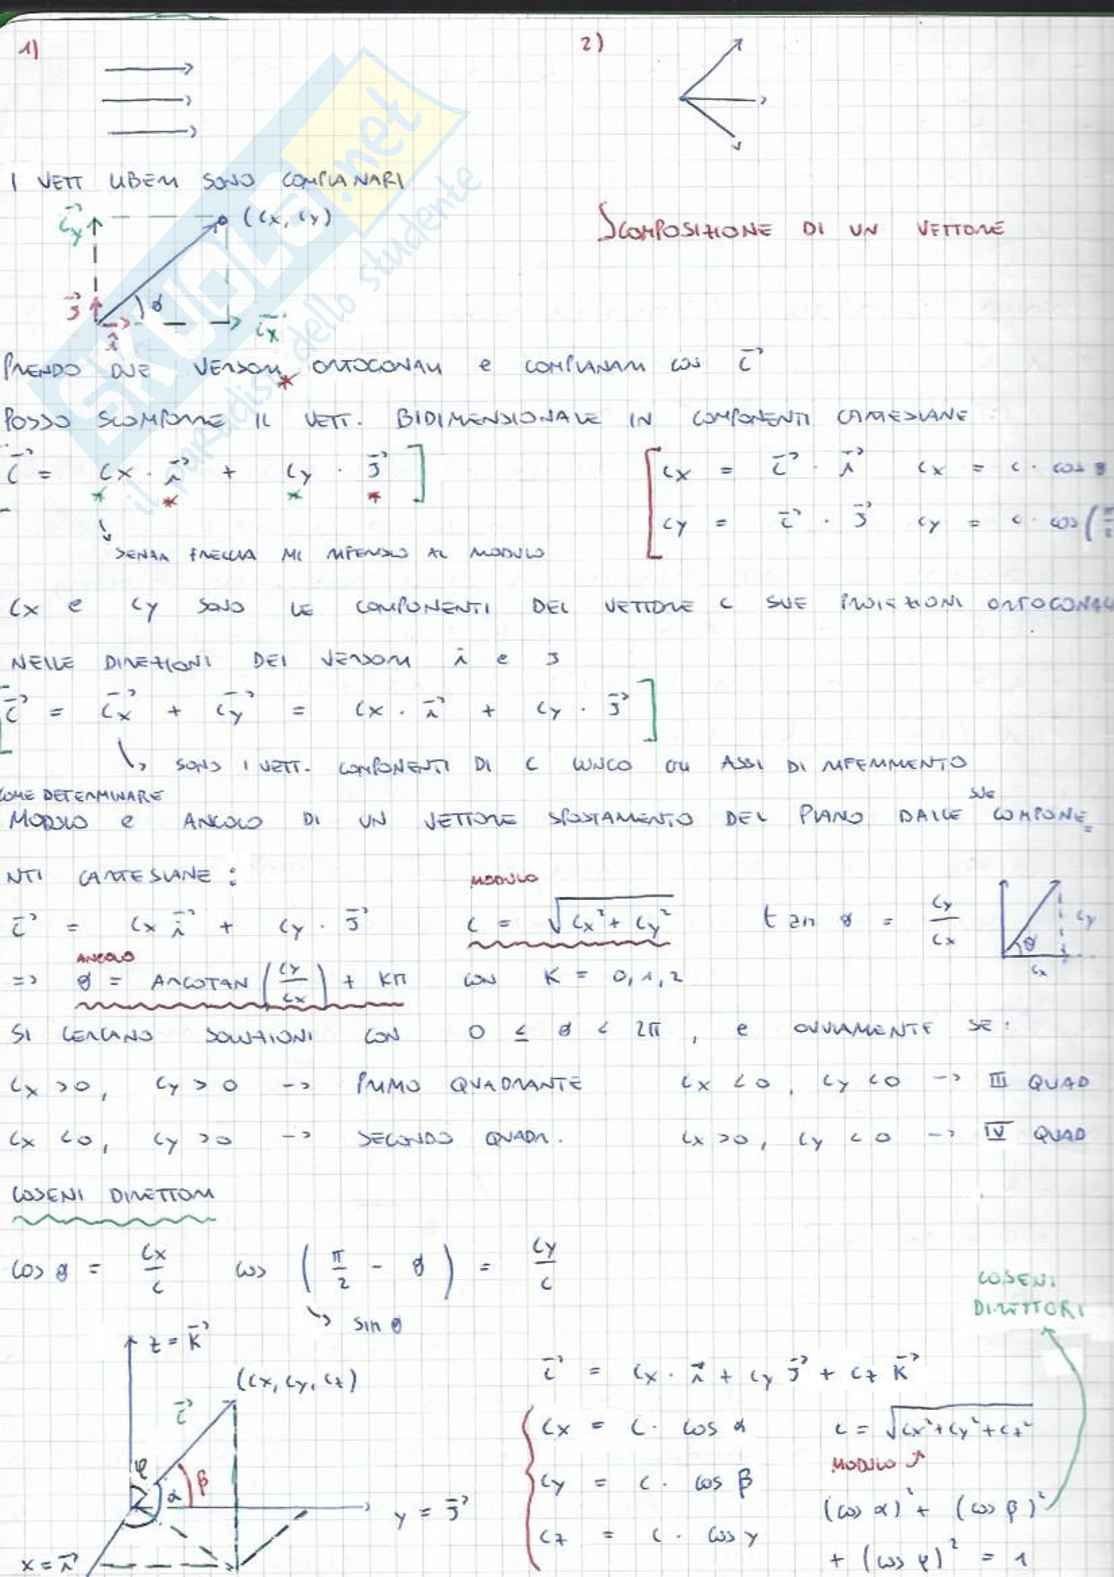 1) 2)
I VETT LIBERI SONO COMPLANARI
c⃗y (cx, cy)
SCOMPOSIZIONE DI UN VETTORE
j⃗ θ c⃗x
i⃗
PRENDO DUE VERSORI* ORTOGONALI e COMPLANARI CON c⃗
POSSO SCOMPORRE IL VETT. BIDIMENSIONALE IN COMPONENTI CARTESIANE :
c⃗ = cx · i⃗ + cy · j⃗ ] [ cx = c⃗ · i⃗ cx = c · cos θ
* * * * cy = c⃗ · j⃗ cy = c · cos(π/2
↳ SENZA FRECCIA MI RIFERISCO AL MODULO
cx e cy SONO LE COMPONENTI DEL VETTORE c SUE PROIEZIONI ORTOGONALI
NELLE DIREZIONI DEI VERSORI i e j
[ c⃗ = c⃗x + c⃗y = cx · i⃗ + cy · j⃗ ]
↳ SONO I VETT. COMPONENTI DI c LUNGO GLI ASSI DI RIFERIMENTO
COME DETERMINARE SUE
MODULO e ANGOLO DI UN VETTORE SPOSTAMENTO DEL PIANO DALLE COMPONE=
NTI CARTESIANE :
MODULO
c⃗ = cx i⃗ + cy · j⃗ c = √(cx² + cy²) tan θ = cy/cx cy
ANGOLO θ
=> θ = ARCOTAN (cy/cx) + Kπ CON K = 0,1,2 cx
SI CERCANO SOLUZIONI CON 0 ≤ θ < 2π , e OVVIAMENTE SE:
cx >0, cy >0 -> PRIMO QUADRANTE cx <0, cy <0 -> III QUAD
cx <0, cy >0 -> SECONDO QUADR. cx >0, cy <0 -> IV QUAD
COSENI DIRETTORI
cos θ = cx/c cos (π/2 - θ) = cy/c
↳ sin θ
COSENI
DIRETTORI
z = k⃗
(cx, cy, cz) c⃗ = cx · i⃗ + cy j⃗ + cz k⃗
c⃗ cx = c · cos α c = √(cx²+cy²+cz²)
φ β MODULO ↗
α cy = c · cos β (cos α)² + (cos β)²
y = j⃗ cz = c · cos γ
x = i⃗ + (cos φ)² = 1
skuola.net
il paradiso dello studente